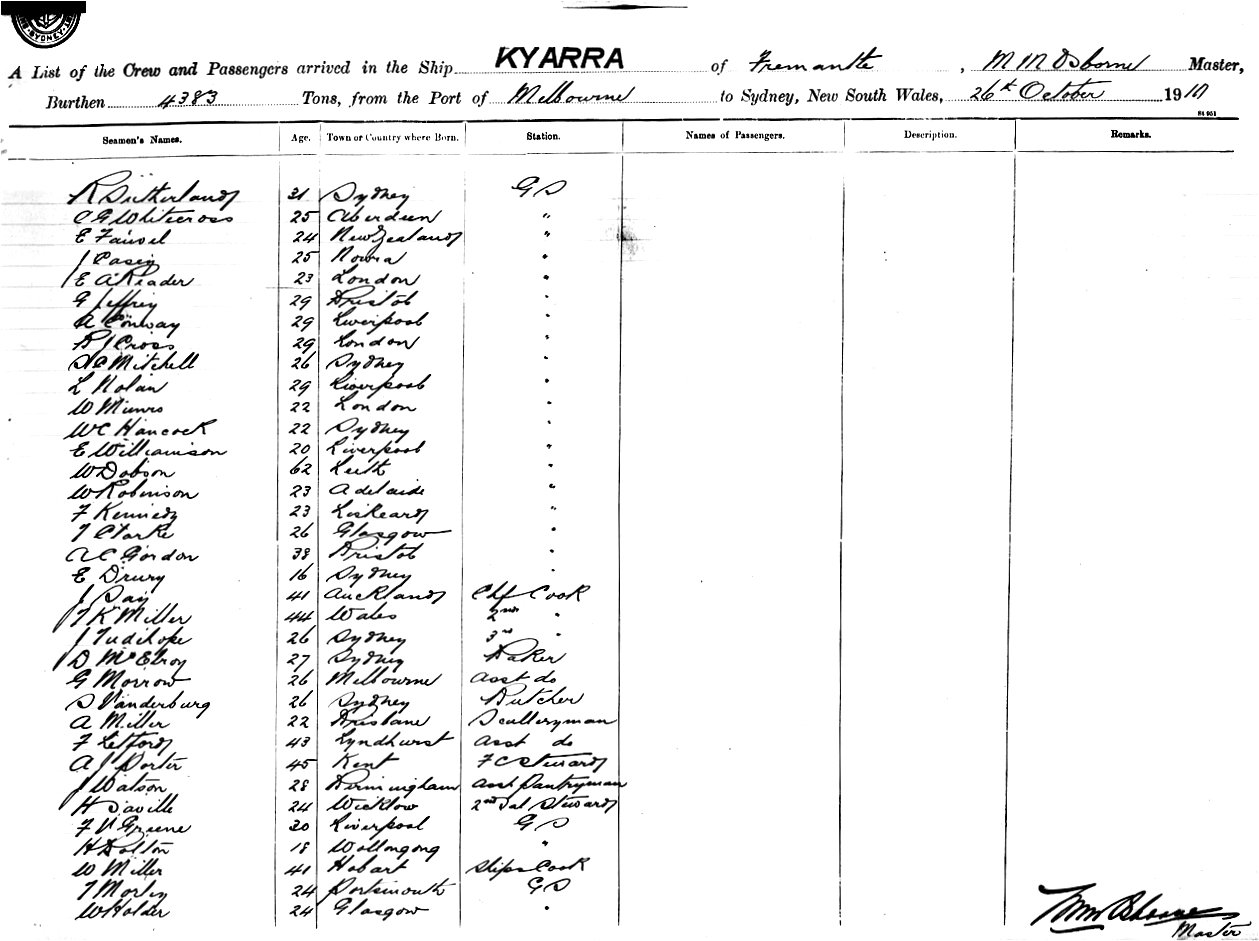 SYDNEY
A List of the Crew and Passengers arrived in the Ship KYARRA of Fremantle, M M Osborne Master,
Burthen 4383 Tons, from the Port of Melbourne to Sydney, New South Wales, 26th October 1910
Seamen's Names. Age. Town or Country where Born. Station. Names of Passengers. Description. Remarks.
R Sutherland 31 Sydney G S
C G Whitecross 25 Aberdeen "
E 24 New Zealand "
J Casey 25 Nowra "
E A Reader 23 London "
G Jeffrey 29 Bristol "
A Conway 29 Liverpool "
R J Cross 29 London "
Mitchell 26 Sydney "
L Nolan 29 Liverpool "
W Munro 22 London "
W C Hancock 22 Sydney "
E Williamson 20 Liverpool "
W Dobson 62 Leith "
W Robinson 23 Adelaide "
F Kennedy 23 Liskeard "
T Clarke 26 Glasgow "
A C Gordon 38 Bristol "
E Drury 16 Sydney "
J Day 41 Auckland Chf Cook
T K Miller 44 Wales 2nd "
J Tudehope 26 Sydney 3rd "
D McElroy 27 Sydney Baker
G Morrow 26 Melbourne Asst do
S Vanderburg 26 Sydney Butcher
A Miller 22 Brisbane Sculleryman
F Letford 43 Lyndhurst Asst do
A J Porter 45 Kent F C Steward
J Watson 28 Birmingham Asst Pantryman
H Saville 24 Wicklow 2nd Sal Steward
F V Greene 30 Liverpool G S
H Dolton 18 Wollongong "
W Miller 41 Hobart Ships Cook
T 24 Portsmouth G S
W Holder 24 Glasgow "
Master